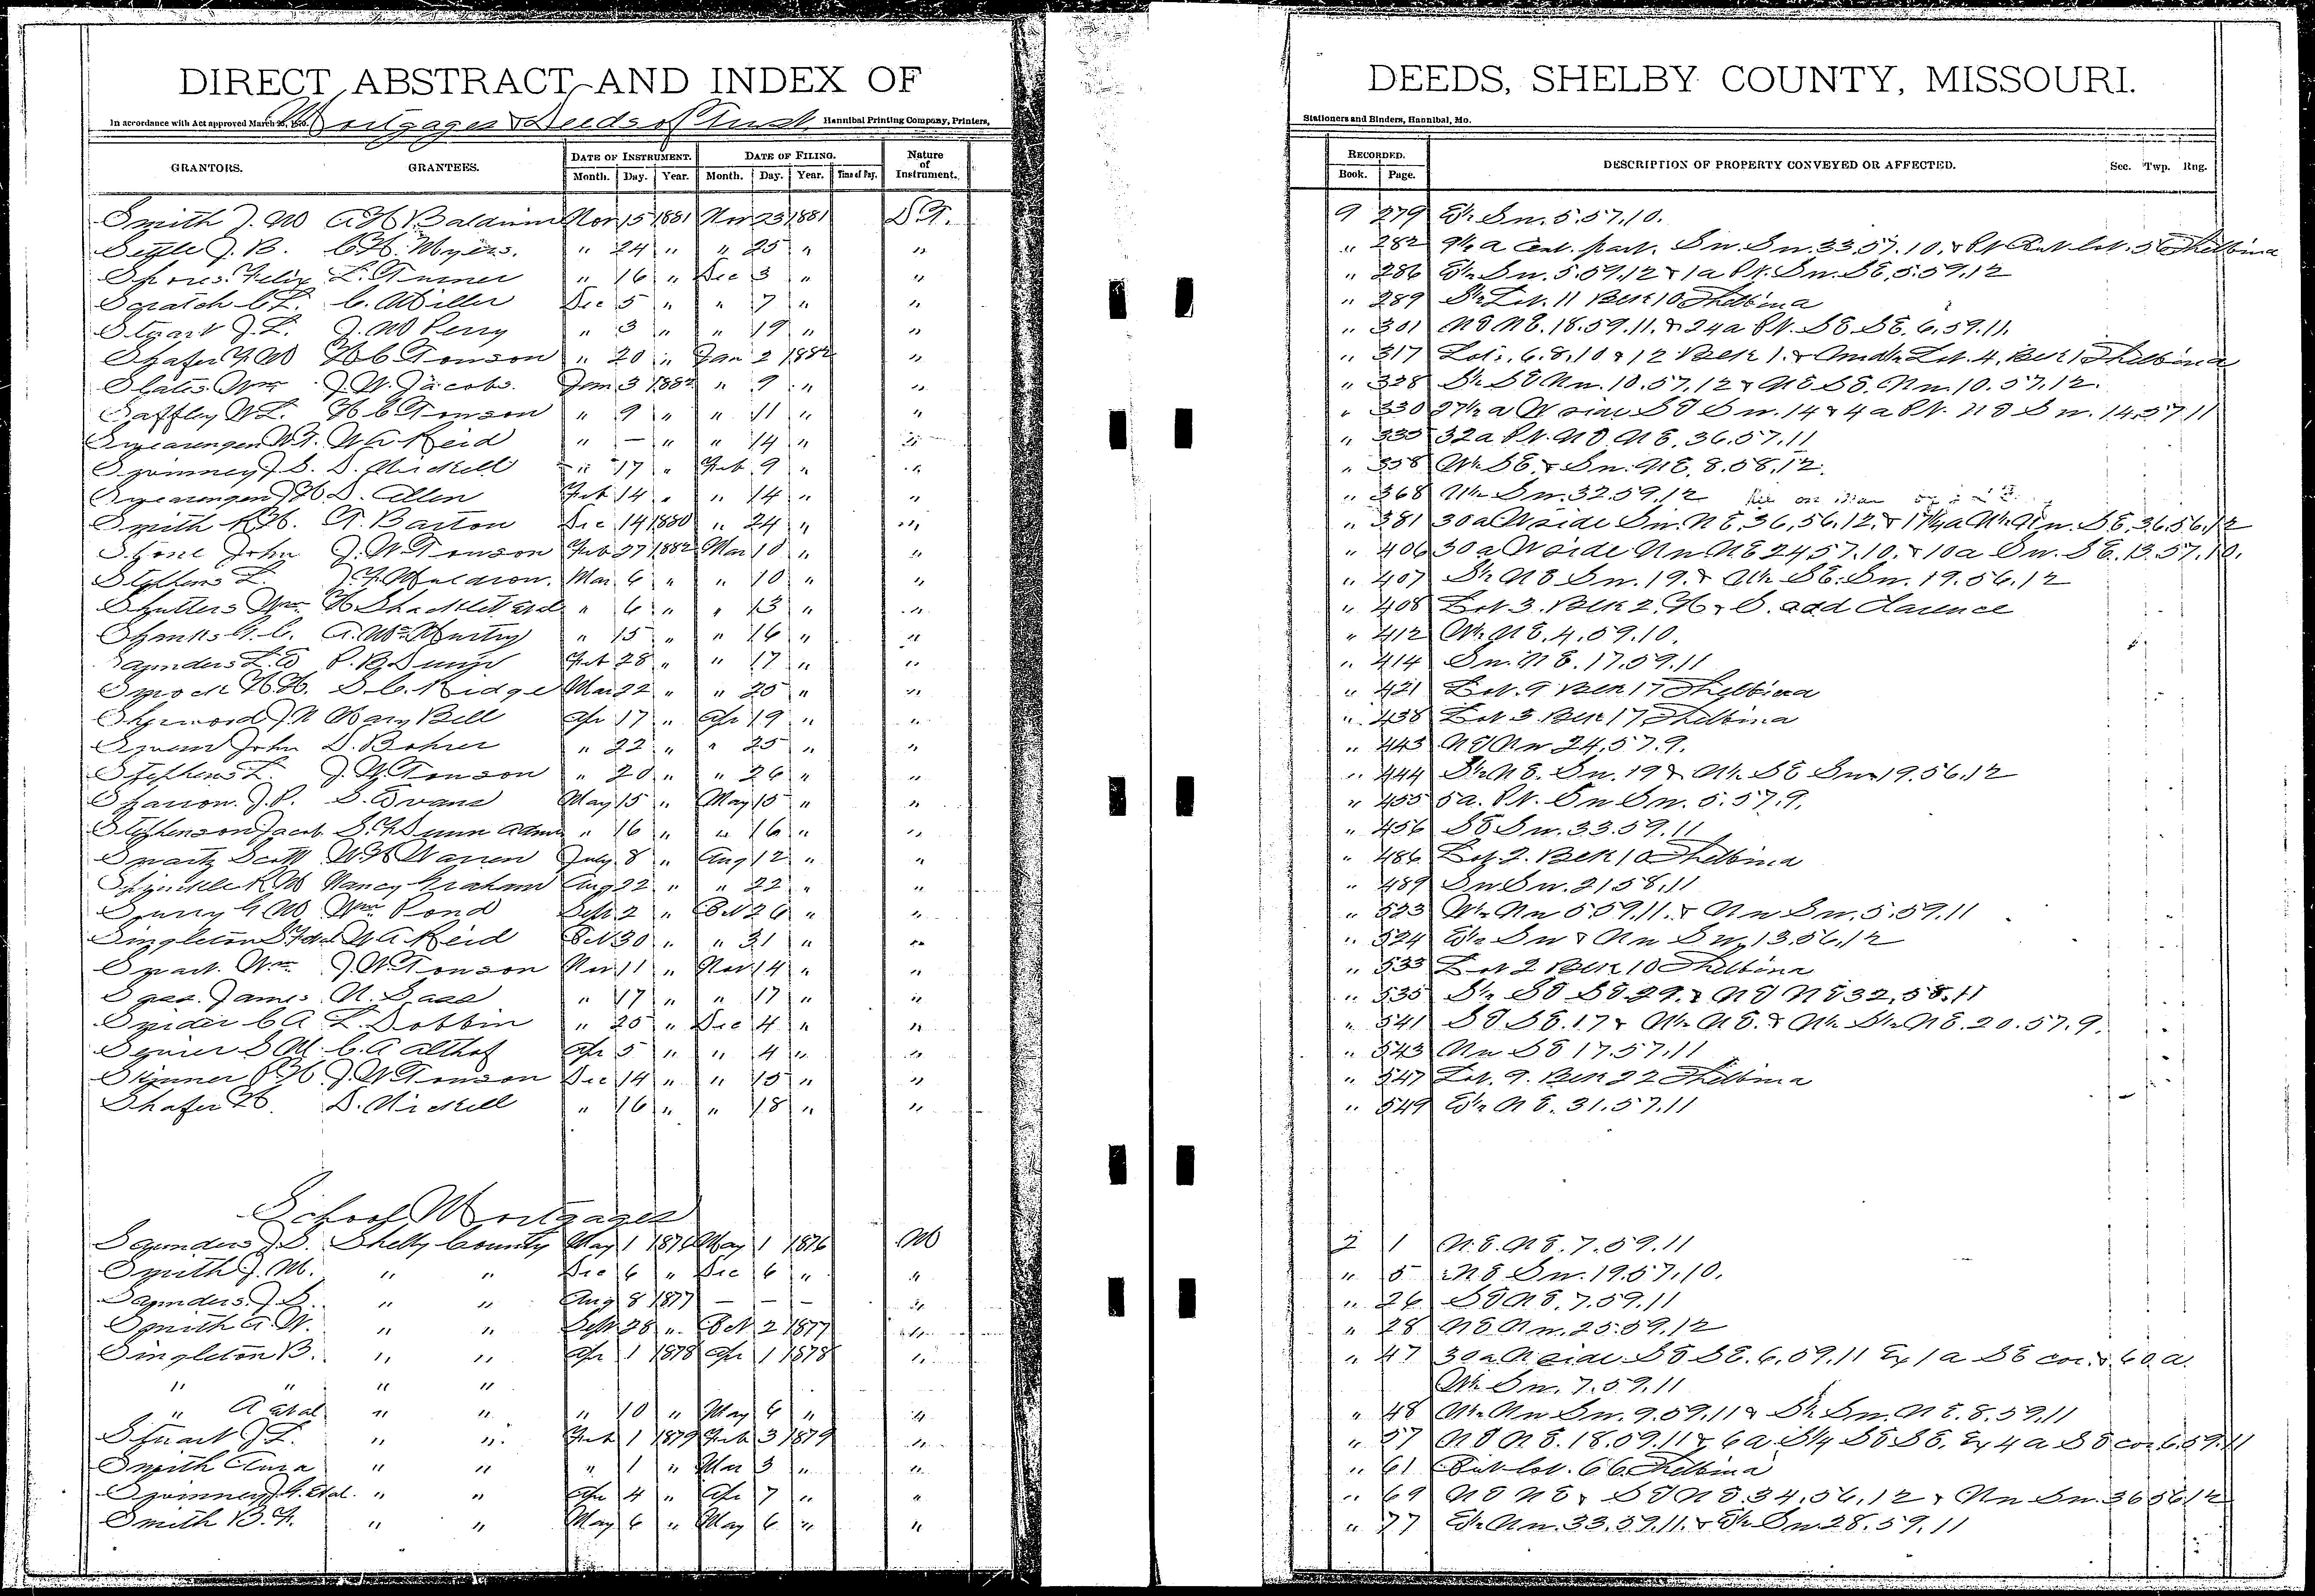 DIRECT ABSTRACT AND INDEX OF DEEDS, SHELBY COUNTY, MISSOURI.
Mortgages & Deeds of Trust
In accordance with Act approved March Hannibal Printing Company, Printers, Stationers and Binders, Hannibal, Mo.
GRANTORS. GRANTEES. DATE OF INSTRUMENT. DATE OF FILING. Nature of Instrument. RECORDED. DESCRIPTION OF PROPERTY CONVEYED OR AFFECTED. Sec. Twp. Rng.
Month. Day. Year. Month. Day. Year. Time of Day. Book. Page.
Smith J. W A H Baldwin Nov 15 1881 Nov 23 1881 D.T. 9 279 E½ Sw. 5.57.10.
Settle J. B. C H. Myers. " 24 " " 25 " " " 282 a Cent. part. Sw. Sw. 33.57.10. & Pt Out lot. 56 Shelbina
Shores. Felix L. Turner " 16 " Dec 3 " " " 286 E½ Sw. 5.59.12 & 1a Pt. Sw. SE. 5.59.12
Scratch C L. C. Miller Dec 5 " " 7 " " " 289 Lot. 11 Blk 10 Shelbina
Stuart J. L. J. W Perry " 3 " " 19 " " " 301 NE NE. 18.59.11. & 24a Pt. SE SE. 6.59.11.
Shafer F. W H C Tonson " 20 " Jan 2 1882 " " 317 Lots. 6.8.10 & 12 Blk 1. & Lot. 4. Blk 1 Shelbina
Slates. Wm J. W. Jacobs. Jan 3 1882 " 9 " " " 328 S½ SE Nw. 10.57.12 & NE SE. Nw. 10.57.12.
Saffley W L. H C Tonson " 9 " " 11 " " " 330 27½ a W side SE Sw. 14 & 4a Pt. NE Sw. 14.57.11
Swearengen W. T. W A Reid " — " " 14 " " " 335 32a Pt. NE NE. 36.57.11
Swinney J. S. D. Mickell " 17 " Feb 9 " " " 358 W½ SE. & Sw. NE. 8.58.12.
Swearengen J H D. Allen Feb 14 " " 14 " " " 368 N½ Sw. 32.59.12
Smith R H. A. Barton Dec 14 1880 " 24 " " " 381 30a W side Sw. NE. 36.56.12. & 17¼a Nw. SE. 36.56.12
Stone John J. W. Tonson Feb 27 1882 Mar 10 " " " 406 30a W side Nw NE 24.57.10. & 10a Sw. SE. 13.57.10.
Stephens L. J. F. Waldron. Mar 6 " " 10 " " " 407 S½ NE Sw. 19. & N½ SE. Sw. 19.56.12
Shutters Wm H " 6 " " 13 " " " 408 Lot 3. Blk 2. H & S. add Clarence
Shanks G. C. A. McMurtry " 15 " " 16 " " " 412 W½ NE. 4.59.10.
Saunders L. E P. B. Feb 28 " " 17 " " " 414 Sw. NE. 17.59.11
Smock H. H. S. C. Ridge Mar 22 " " 25 " " " 421 Lot. 9 Blk 17 Shelbina
Sherwood J. N Mary Bell Apr 17 " Apr 19 " " " 438 Lot 3. Blk 17 Shelbina
John D. Bohrer " 22 " " 25 " " " 443 NE Nw 24.57.9.
Stephens L. J. W. Tonson " 20 " " 26 " " " 444 S½ NE. Sw. 19 & N½. SE Sw 19.56.12
Sharron. J. P. S. Evans May 15 " May 15 " " " 455 5a. Pt. Sw Sw. 5.57.9.
Stephenson Jacob S. F. Dunn Admr " 16 " " 16 " " " 456 SE Sw. 33.59.11
Swartz Scott W. H Warren July 8 " Aug 12 " " " 486 Lot 2. Blk 10 Shelbina
Sprinkle R W Nancy Graham Aug 22 " " 22 " " " 489 Sw Sw. 21.58.11
Spurry G W Wm Pond Sept 2 " Oct 26 " " " 523 W½ Nw 5.59.11. & Nw Sw. 5.59.11
Singleton W A Reid Oct 30 " " 31 " " " 524 E½ Sw & Nw Sw. 13.56.12
Swart. Wm. J. W. Tonson Nov 11 " Nov 14 " " " 533 Lot 2 Blk 10 Shelbina
Sass. James N. Sass " 17 " " 17 " " " 535 S½ SE SE 29. & NE NE 32.58.11
Snider C A L. Dobbin " 25 " Dec 4 " " " 541 SE SE. 17 & W½ NE. & N½ S½ NE. 20.57.9.
Senier S M. C. A Althof Apr 5 " " 4 " " " 543 Nw SE 17.57.11
Skinner P. H. J. W Tonson Dec 14 " " 15 " " " 547 Lot. 9. Blk 22 Shelbina
Shafer H. D. Mickell " 16 " " 18 " " " 549 E½ NE. 31.57.11
School Mortgages
Saunders J. S. Shelby County May 1 1876 May 1 1876 M 2 1 N.E. NE. 7.59.11
Smith J. M. " " Dec 6 " Dec 6 " " " 5 NE Sw. 19.57.10.
Saunders. J. S. " " Aug 8 1877 — — — " " 26 SE NE. 7.59.11
Smith A. W. " " Sept 28 " Oct 2 1877 " " 28 NE Nw. 25.59.12
Singleton B. " " Apr 1 1878 Apr 1 1878 " " 47 30a N side SE SE. 6.59.11 Ex 1a SE cor. & 60a.
" " " " W½ Sw. 7.59.11
" A etal " " " 10 " May 6 " " " 48 N½ Nw Sw. 9.59.11 & S½ Sw. NE. 8.59.11
Stuart J. L. " " Feb 1 1879 Feb 3 1879 " " 57 NE NE. 18.59.11 & 6a SE SE. Ex 4a SE cor 6.59.11
Smith Aura " " " 1 " Mar 3 " " " 61 Out lot. 66. Shelbina
Swinney J. G. etal. " " Apr 4 " Apr 7 " " " 69 NE NE & SE NE 34.56.12 & Nw Sw. 36.56.12
Smith B. F. " " May 6 " May 6 " " " 77 E½ Nw. 33.59.11. & Sw 28.59.11